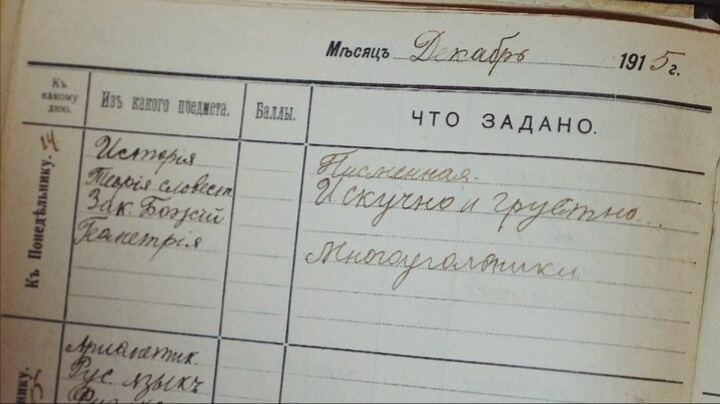 Мѣсяцъ Декабрь 1915 г.
Къ какому дню.
Изъ какого предмета.
Баллы.
ЧТО ЗАДАНО.
Къ Понедѣльнику. 14
Исторія
Письменная.
Теорія словест.
И скучно и грустно...
Зак. Божій
Геометрія
Многоугольники
нику.
Рус. языкъ